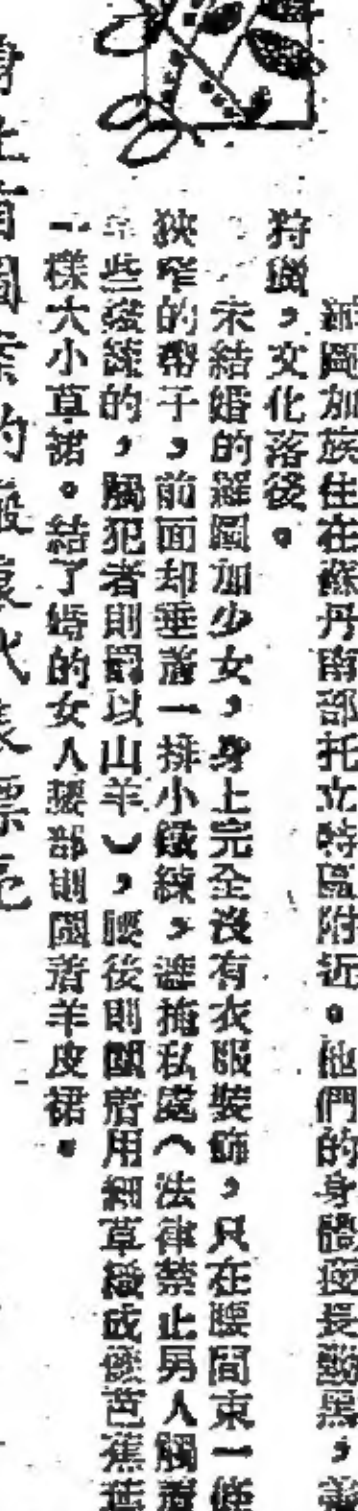 羅圖加族住在蘇丹南部托立特區附近。他們的身體瘦長黝黑，
狩獵，文化落後。
未結婚的羅圖加少女，身上完全沒有衣服裝飾，只在腰間束一條
狹窄的帶子，前面却垂着一排小鐵鍊，遮掩私處（法律禁止男人觸着
這些鐵鍊的，觸犯者則罰以山羊），腰後則圍着用細草織成像芭蕉葉
一樣大小草裙。結了婚的女人腰部則圍着羊皮裙。